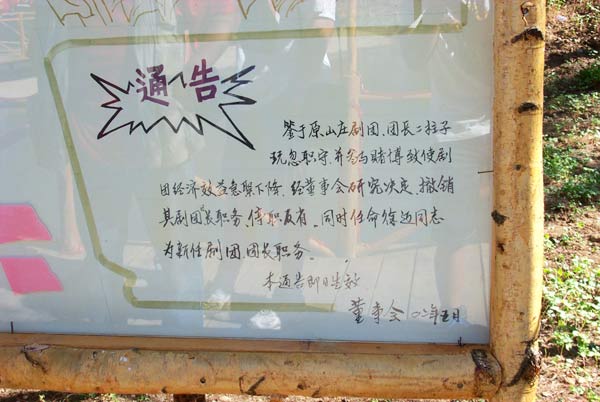 通告
鉴于原山庄剧团、团长二柱子
玩忽职守、并参与赌博致使剧
团经济效益急骤下降、经董事会研究决定、撤销
其剧团长职务、停职反省、同时任命徐迅同志
为新任剧团团长职务。
本通告即日生效
董事会 二〇〇二年五月